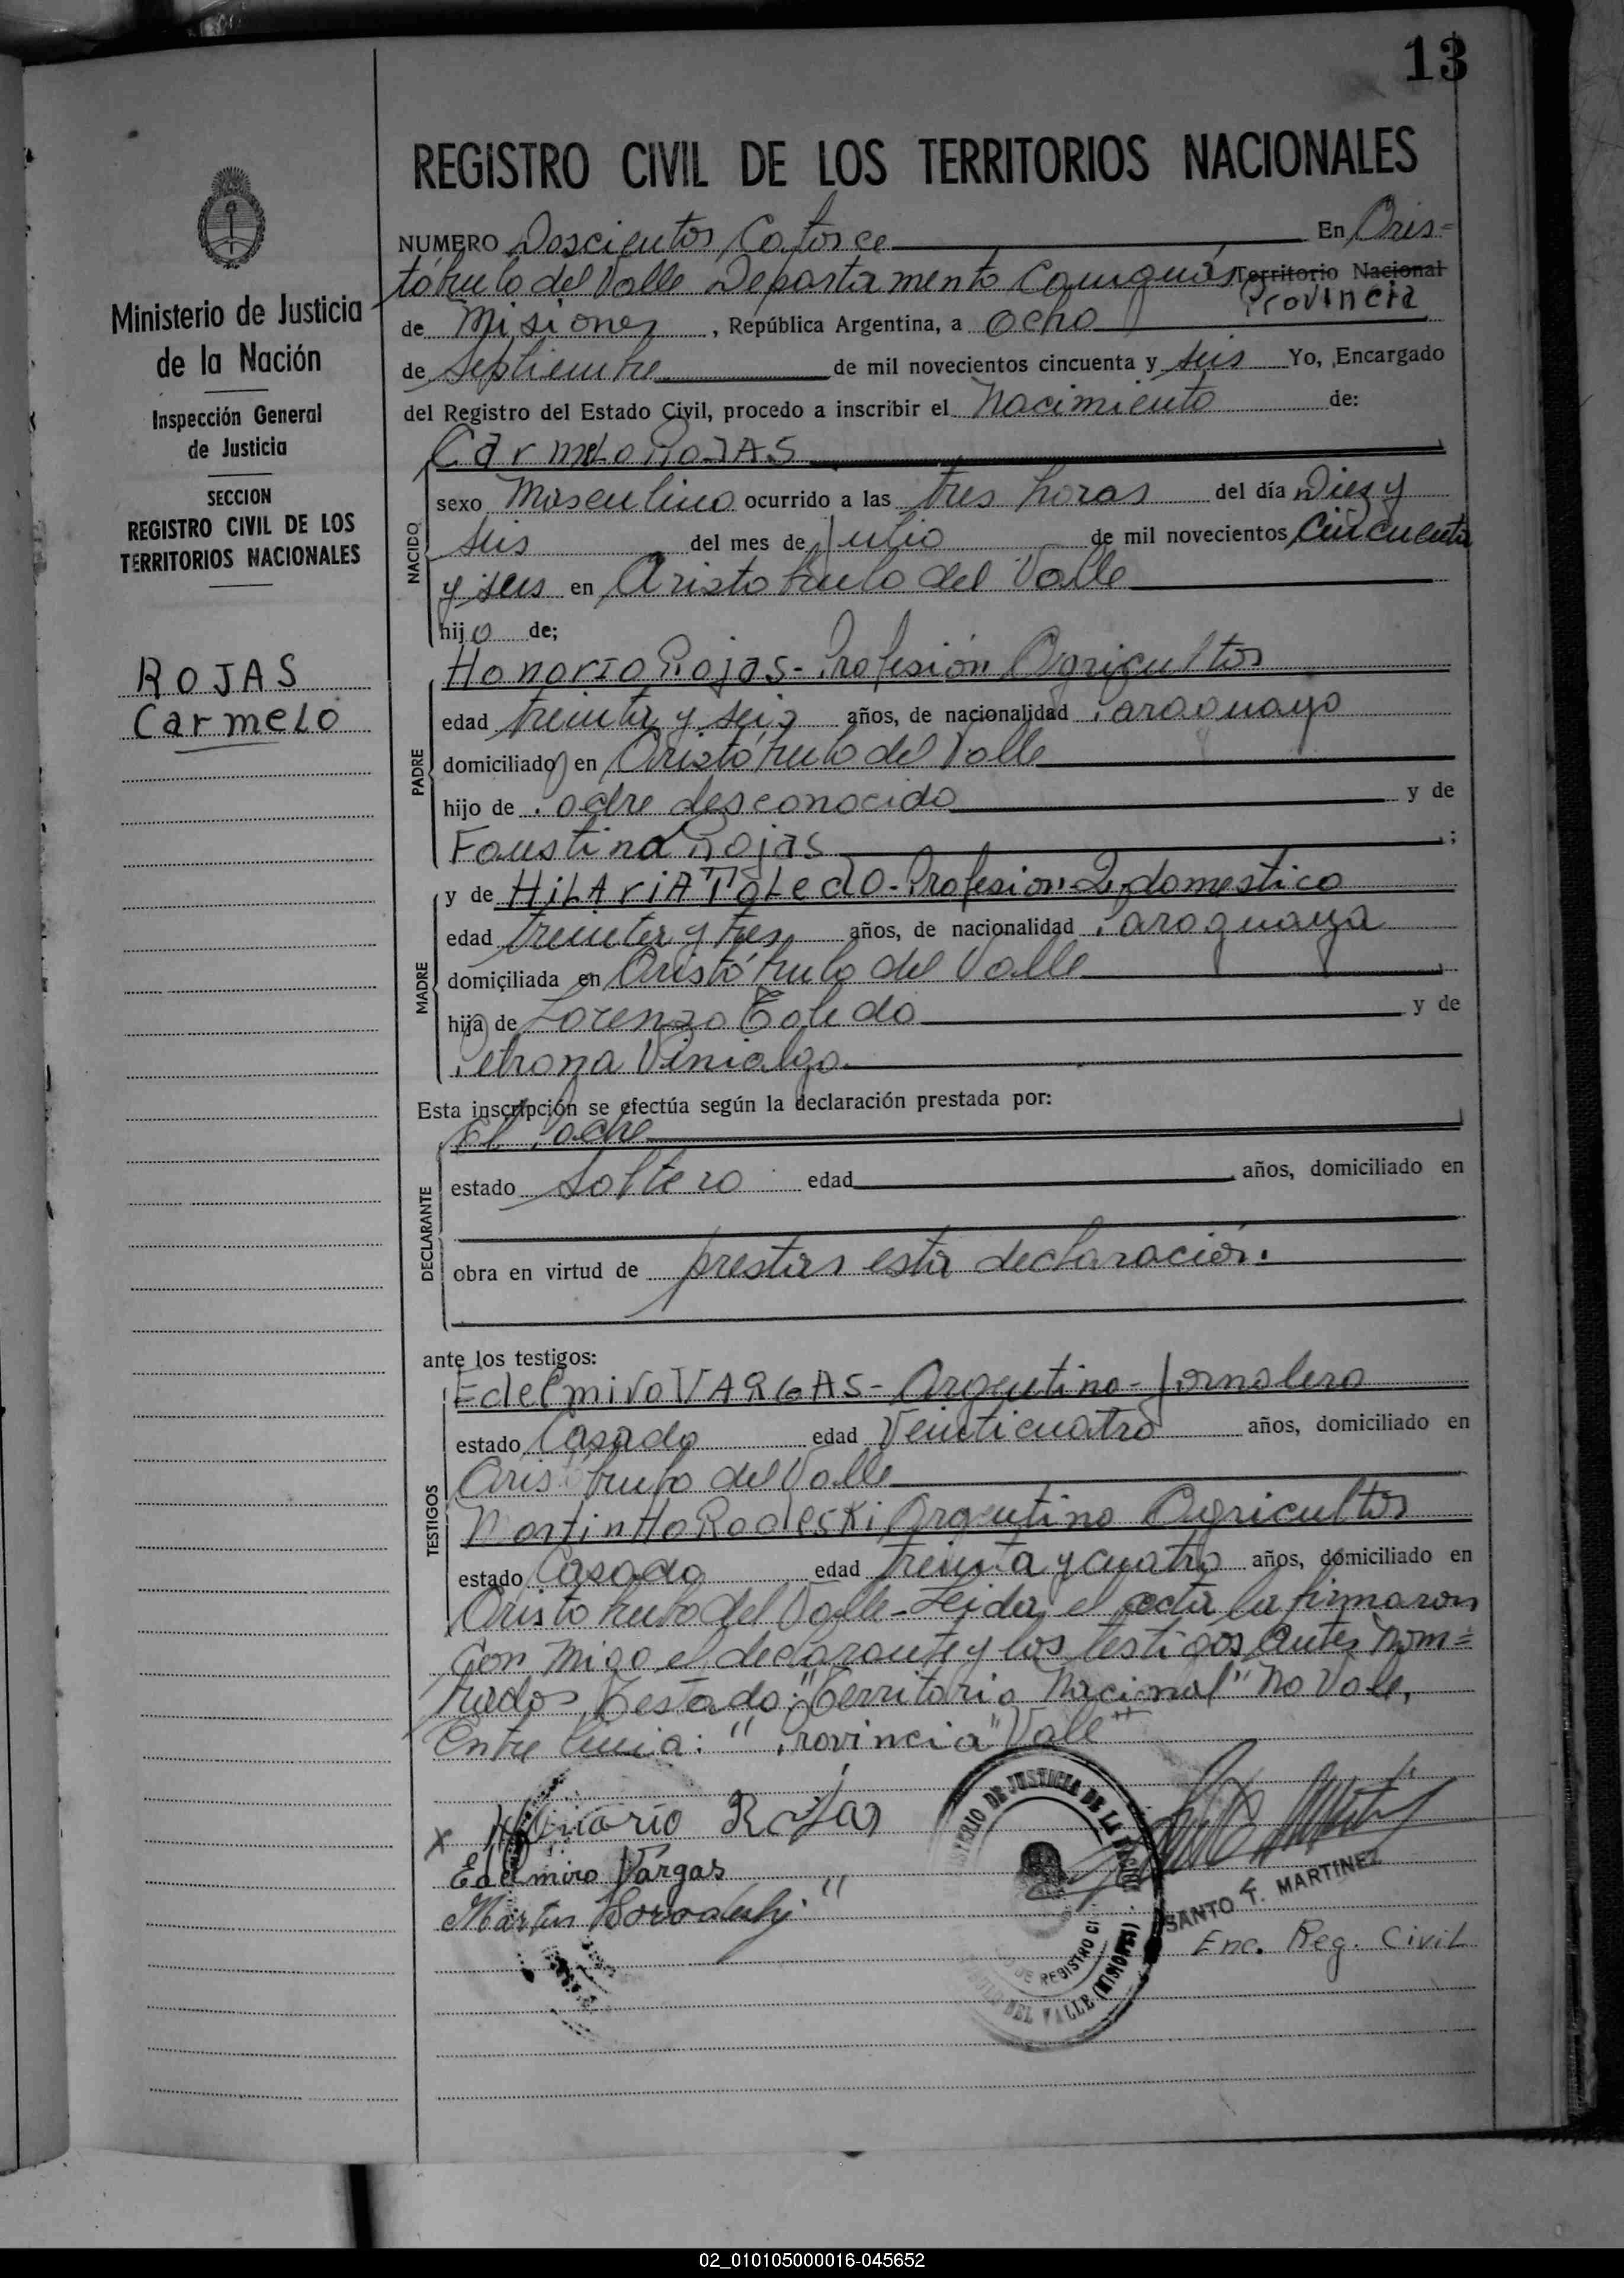 13
REGISTRO CIVIL DE LOS TERRITORIOS NACIONALES
Ministerio de Justicia
de la Nación
Inspección General
de Justicia
SECCION
REGISTRO CIVIL DE LOS
TERRITORIOS NACIONALES
ROJAS
Carmelo
NUMERO Doscientos Catorce En Aris=
tóbulo del Valle Departamento Cainguás Territorio Nacional
Provincia
de Misiones, República Argentina, a ocho
de septiembre de mil novecientos cincuenta y seis Yo, Encargado
del Registro del Estado Civil, procedo a inscribir el Nacimiento de:
Carmelo ROJAS
NACIDO
sexo Masculino ocurrido a las tres horas del día Diez y
seis del mes de Julio de mil novecientos Cincuenta
y seis en Aristobulo del Valle
hijo de;
PADRE
Honorio Rojas - Profesión Agricultor
edad treinta y seis años, de nacionalidad Paraguayo
domiciliado en Aristóbulo del Valle
hijo de Padre desconocido y de
Faustina Rojas ;
MADRE
y de HiLAriA ToLedO - Profesion Q. domestico
edad treinta y tres años, de nacionalidad Paraguaya
domiciliada en Aristóbulo del Valle
hija de Lorenzo Toledo y de
Petrona Vinialgo
Esta inscripción se efectúa según la declaración prestada por:
DECLARANTE
El Padre
estado Soltero edad años, domiciliado en
obra en virtud de prestar esta declaración.
ante los testigos:
TESTIGOS
Edelmiro VARGAS - Argentino - Jornalero
estado Casado edad Veinticuatro años, domiciliado en
Aristobulo del Valle
Martin Argentino Agricultor
estado Casado edad treinta y cuatro años, domiciliado en
Aristobulo del Valle - Leida el acta la firmaron
con migo el declarante y los testigos antes nom=
brados Testado: "Territorio Nacional" No Vale,
Entre linia: "Provincia" Vale"
x Honorio Rojas
Edelmiro Vargas
Martin
MINISTERIO DE JUSTICIA DE LA NACION
DE REGISTRO CI
DEL VALLE (MISIONES)
SANTO T. MARTINEZ
Enc. Reg. Civil
02_010105000016-045652